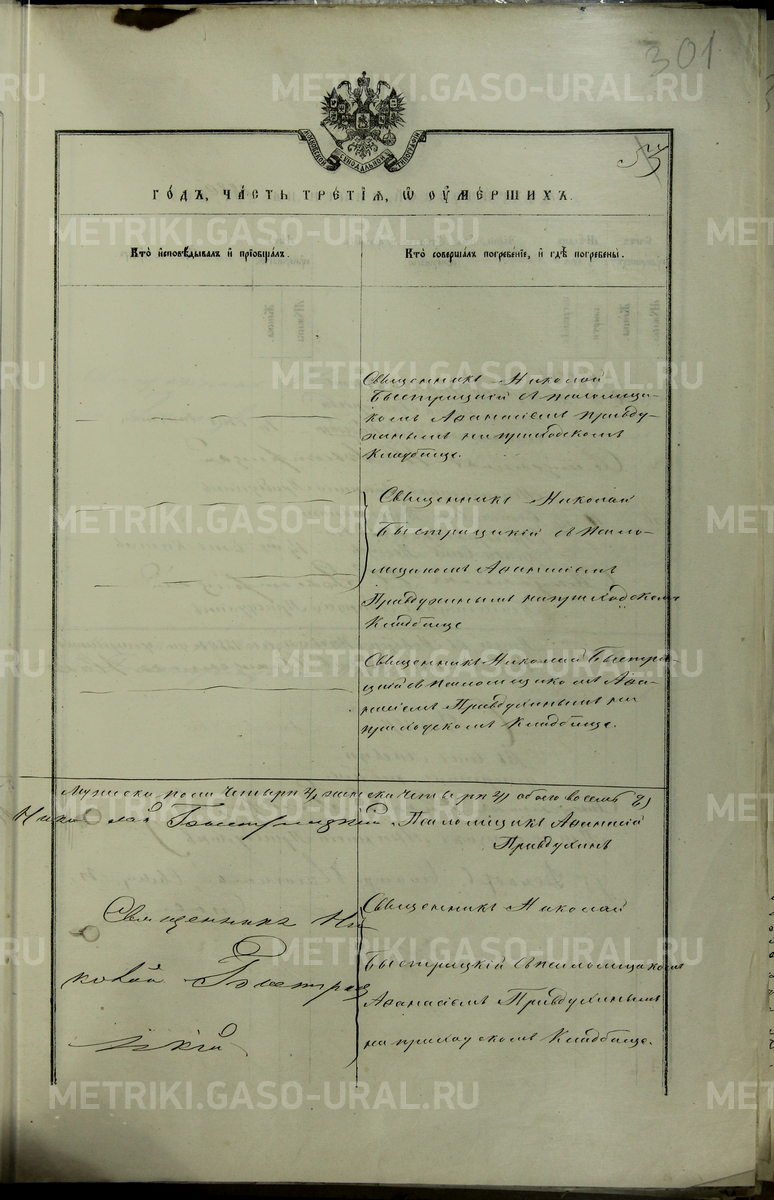 301
МОСКОВСКОЙ СѴНОДАЛЬНОЙ ТИПОГРАФІИ
ГОДЪ, ЧАСТЬ ТРЕТІЯ, Ѡ ОУМЕРШИХЪ.
Кто исповѣдывалъ и пріобщалъ.
Кто совершалъ погребеніе, и гдѣ погребены.
Священникъ Николай
Быстрицкій съ псаломщи-
комъ Аѳанасіемъ Правду-
хинымъ на приходскомъ
кладбище.
Священникъ Николай
Быстрицкій съ псало-
мщикомъ Аѳанасіемъ
Правдухинымъ на приходскомъ
кладбище
Священникъ Николай Быстри-
цкій съ псаломщикомъ Аѳа-
насіемъ Правдухинымъ на
приходскомъ кладбище.
Мужска пола четыри 4, женска четыри 4, обоего восемь 8)
Николай Быстрицкій. Псаломщикъ Аѳанасій
Правдухинъ
Священникъ Ни
колай Быстриц
кій
Священникъ Николай
Быстрицкій съ псаломщикомъ
Аѳанасіемъ Правдухинымъ
на приходскомъ кладбище.
METRIKI.GASO-URAL.RU